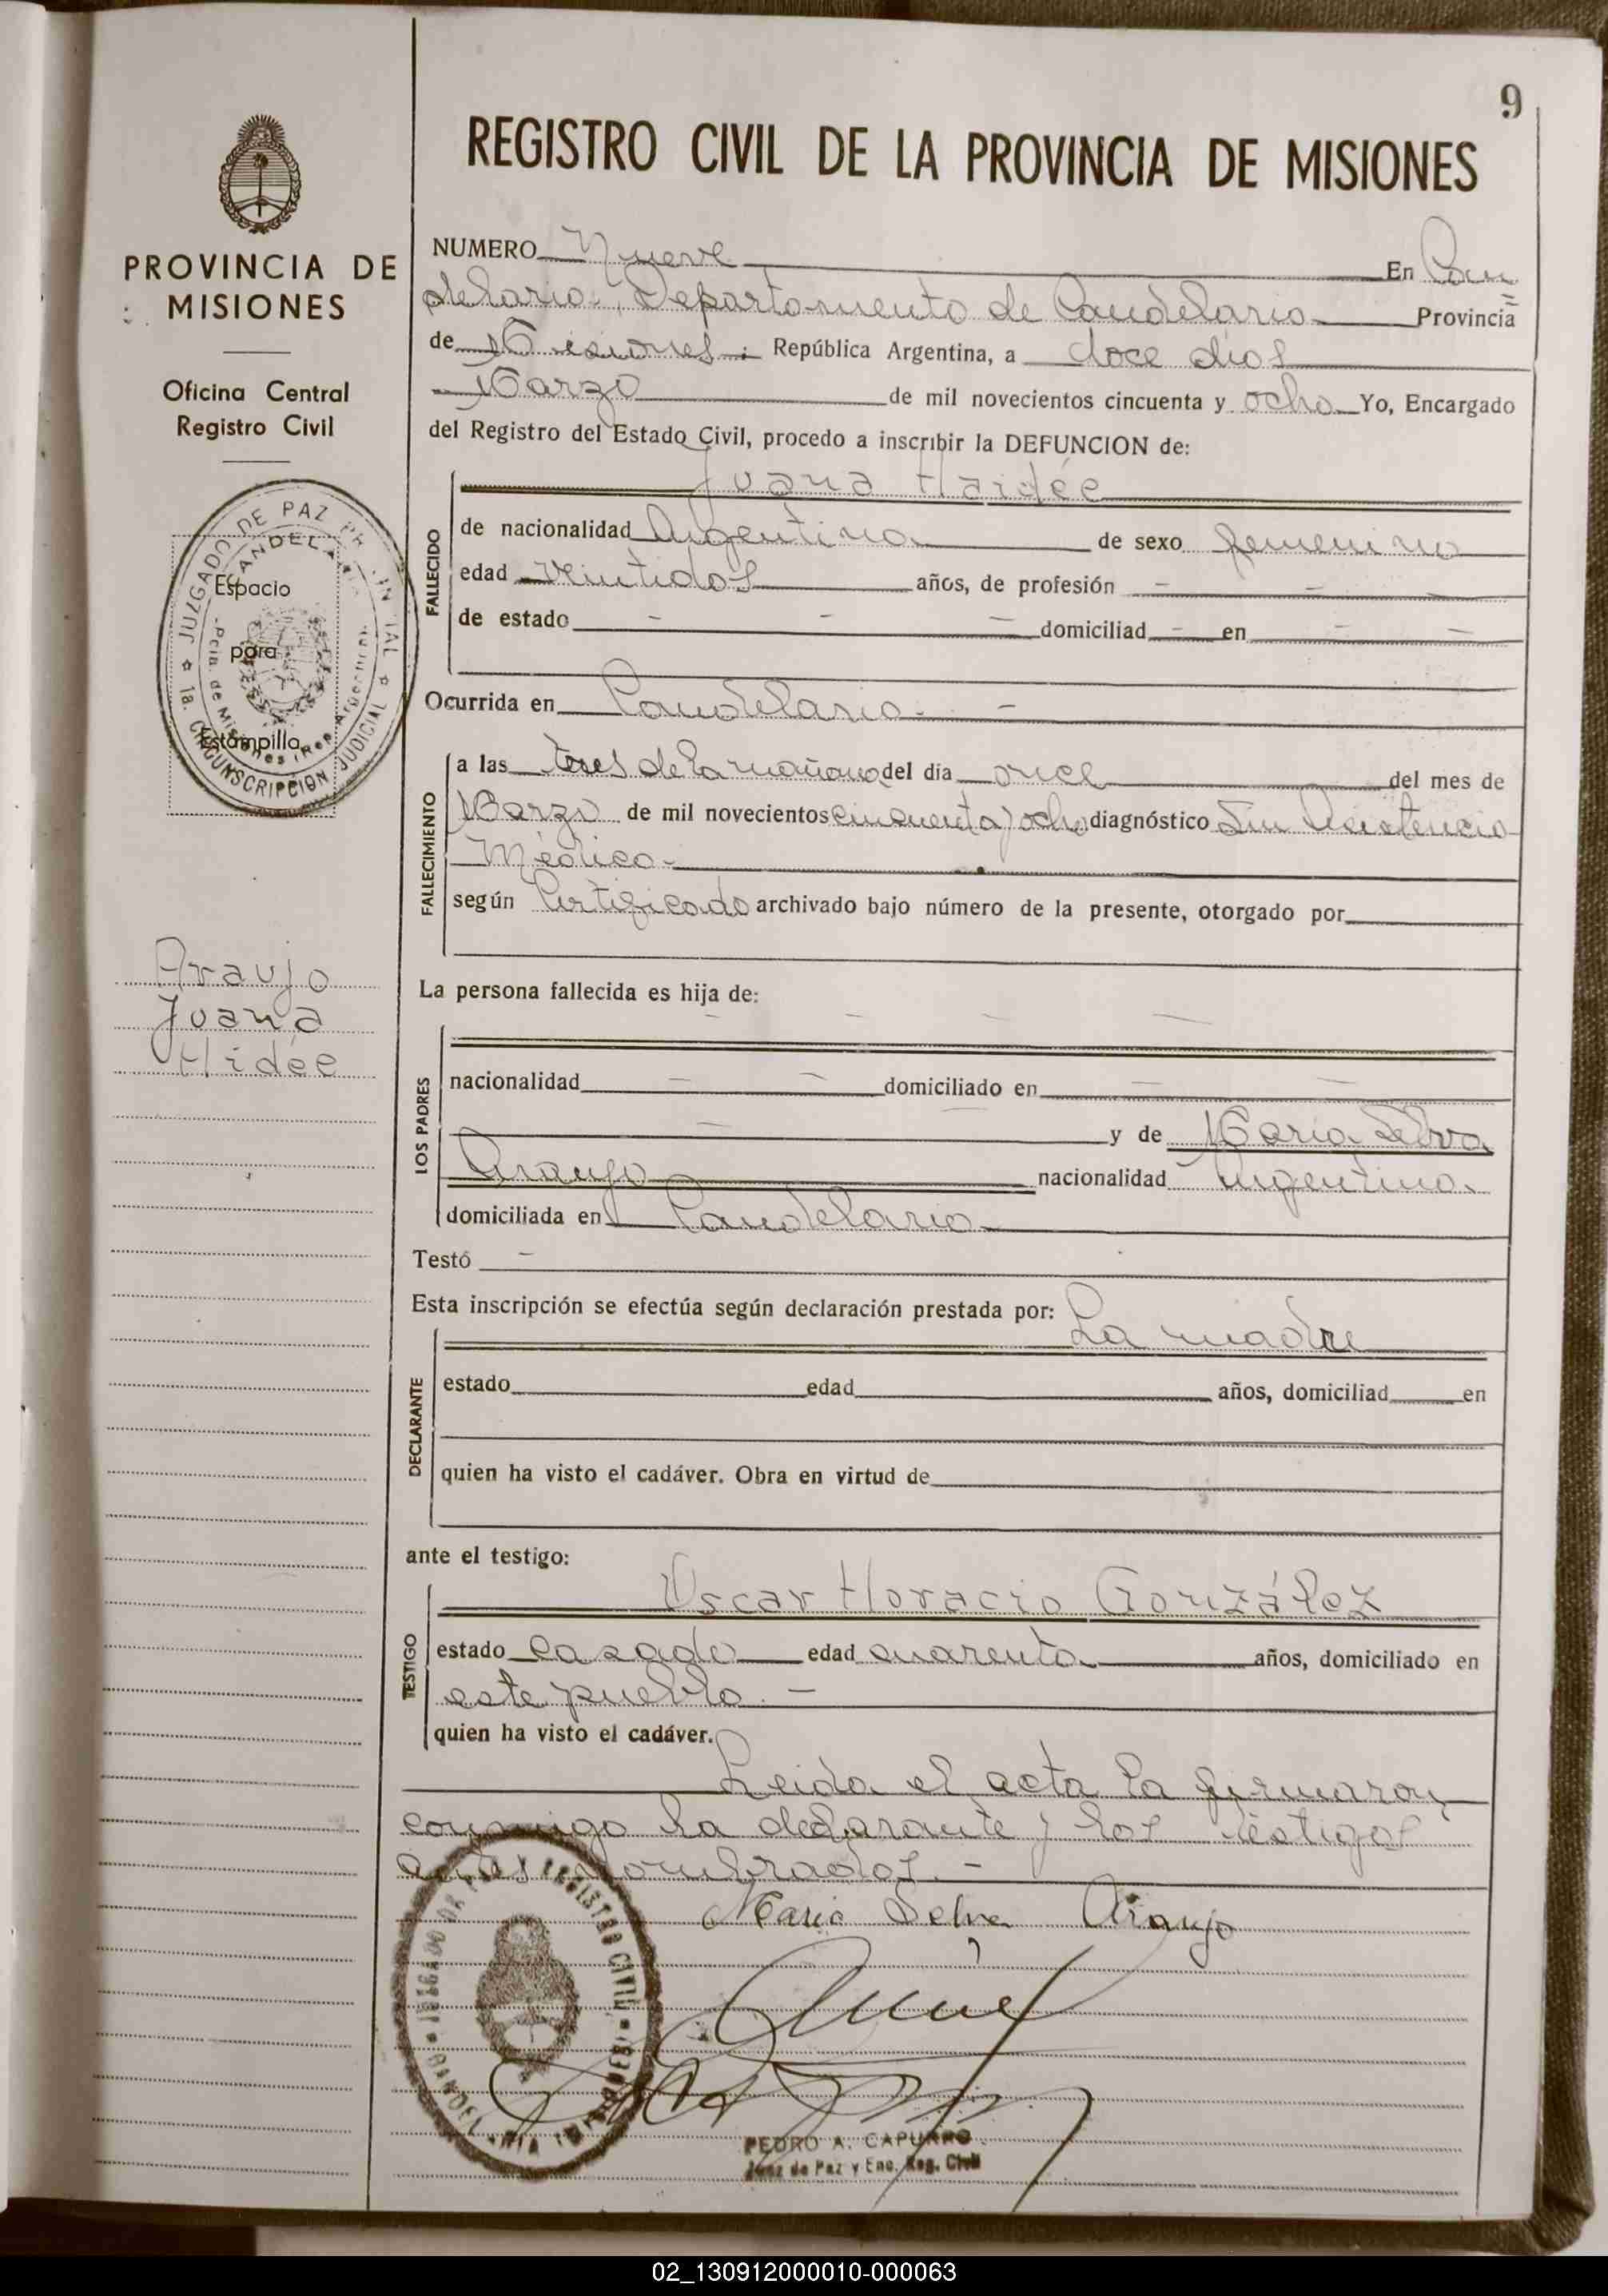 9
REGISTRO CIVIL DE LA PROVINCIA DE MISIONES
PROVINCIA DE
MISIONES
Oficina Central
Registro Civil
JUZGADO DE PAZ
CANDELARIA
Pcia. de Misiones (Rep. Argentina)
1a. CIRCUNSCRIPCIÓN JUDICIAL
Espacio
para
Estampilla
Araujo
Juana
Hidée
NUMERO Nueve En Can
delaria, Departamento de Candelaria Provincia
de Misiones.- República Argentina, a doce dias
Marzo de mil novecientos cincuenta y ocho Yo, Encargado
del Registro del Estado Civil, procedo a inscribir la DEFUNCION de:
Juana Haidée
FALLECIDO
de nacionalidad Argentina de sexo femenino
edad veintidos años, de profesión - - -
de estado - - - domiciliad - en - -
Ocurrida en Candelaria.- -
FALLECIMIENTO
a las tres de la mañana del dia once del mes de
Marzo de mil novecientos cincuenta y ocho diagnóstico Sin Asistencia
Médica.-
según Certificado archivado bajo número de la presente, otorgado por
La persona fallecida es hija de:
- - - -
LOS PADRES
nacionalidad - - domiciliado en - -
- y de Maria Selva
Araujo nacionalidad Argentina.
domiciliada en Candelaria
Testó -
Esta inscripción se efectúa según declaración prestada por: La madre
DECLARANTE
estado edad años, domiciliad en
quien ha visto el cadáver. Obra en virtud de
ante el testigo:
Oscar Horacio González
TESTIGO
estado casado edad cuarenta años, domiciliado en
este pueblo. -
quien ha visto el cadáver.
Leida el acta la firmaron
conmigo la declarante y los testigos
antes nombrados. -
Maria Selva Araujo
PEDRO A. CAPURRO
Juez de Paz y Enc. Reg. Civil
02_130912000010-000063